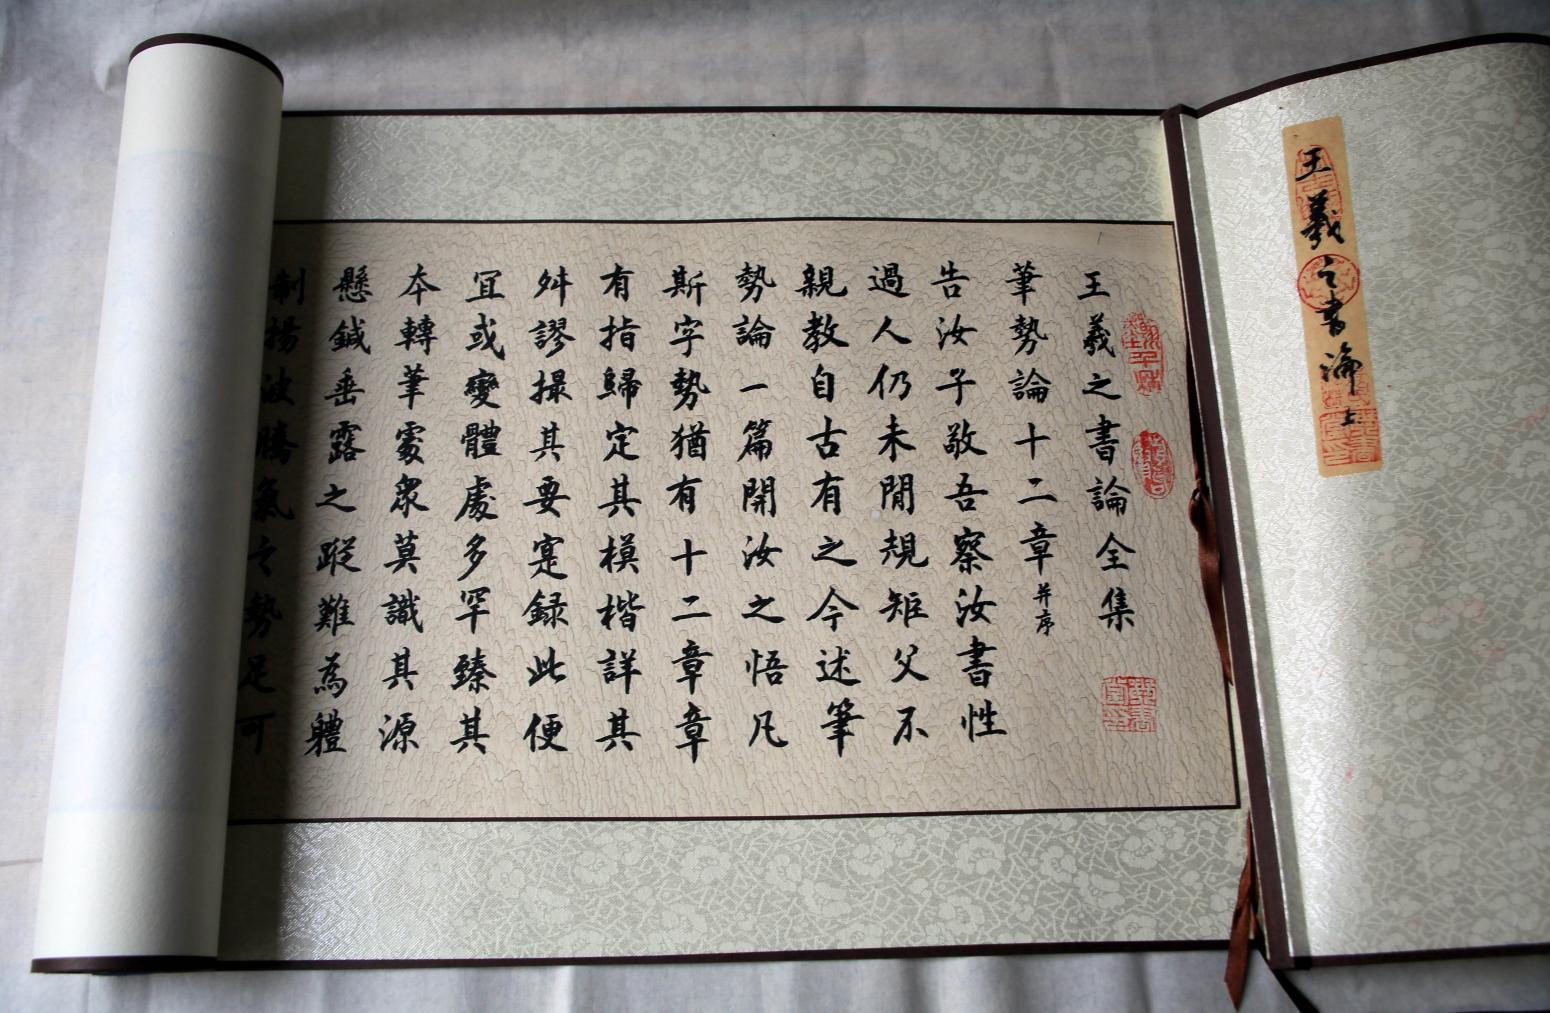 王羲之書論上
王羲之書論全集
筆勢論十二章并序
告汝子敬吾察汝書性
過人仍未閒規矩父不
親教自古有之今述筆
勢論一篇開汝之悟凡
斯字勢猶有十二章章
有指歸定其模楷詳其
舛謬撮其要寔録此便
冝或變體處多罕臻其
夲轉筆處衆莫識其源
懸鍼垂露之蹤難為軆
制揚波騰氣之勢足可